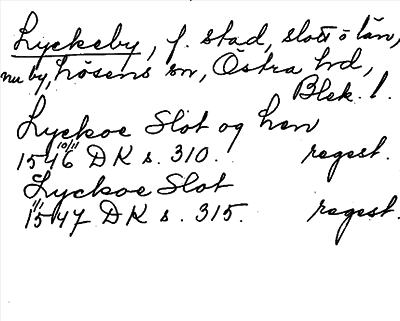 Lyckeby, f. stad, slott o län,
nu by, Lösens sn, Östra hd,
Blek. l.
Lyckoe Slot og Len
1546 10/11 DK s. 310. regest.
Lyckoe Slot
1547 1/1 DK s. 315. regest.